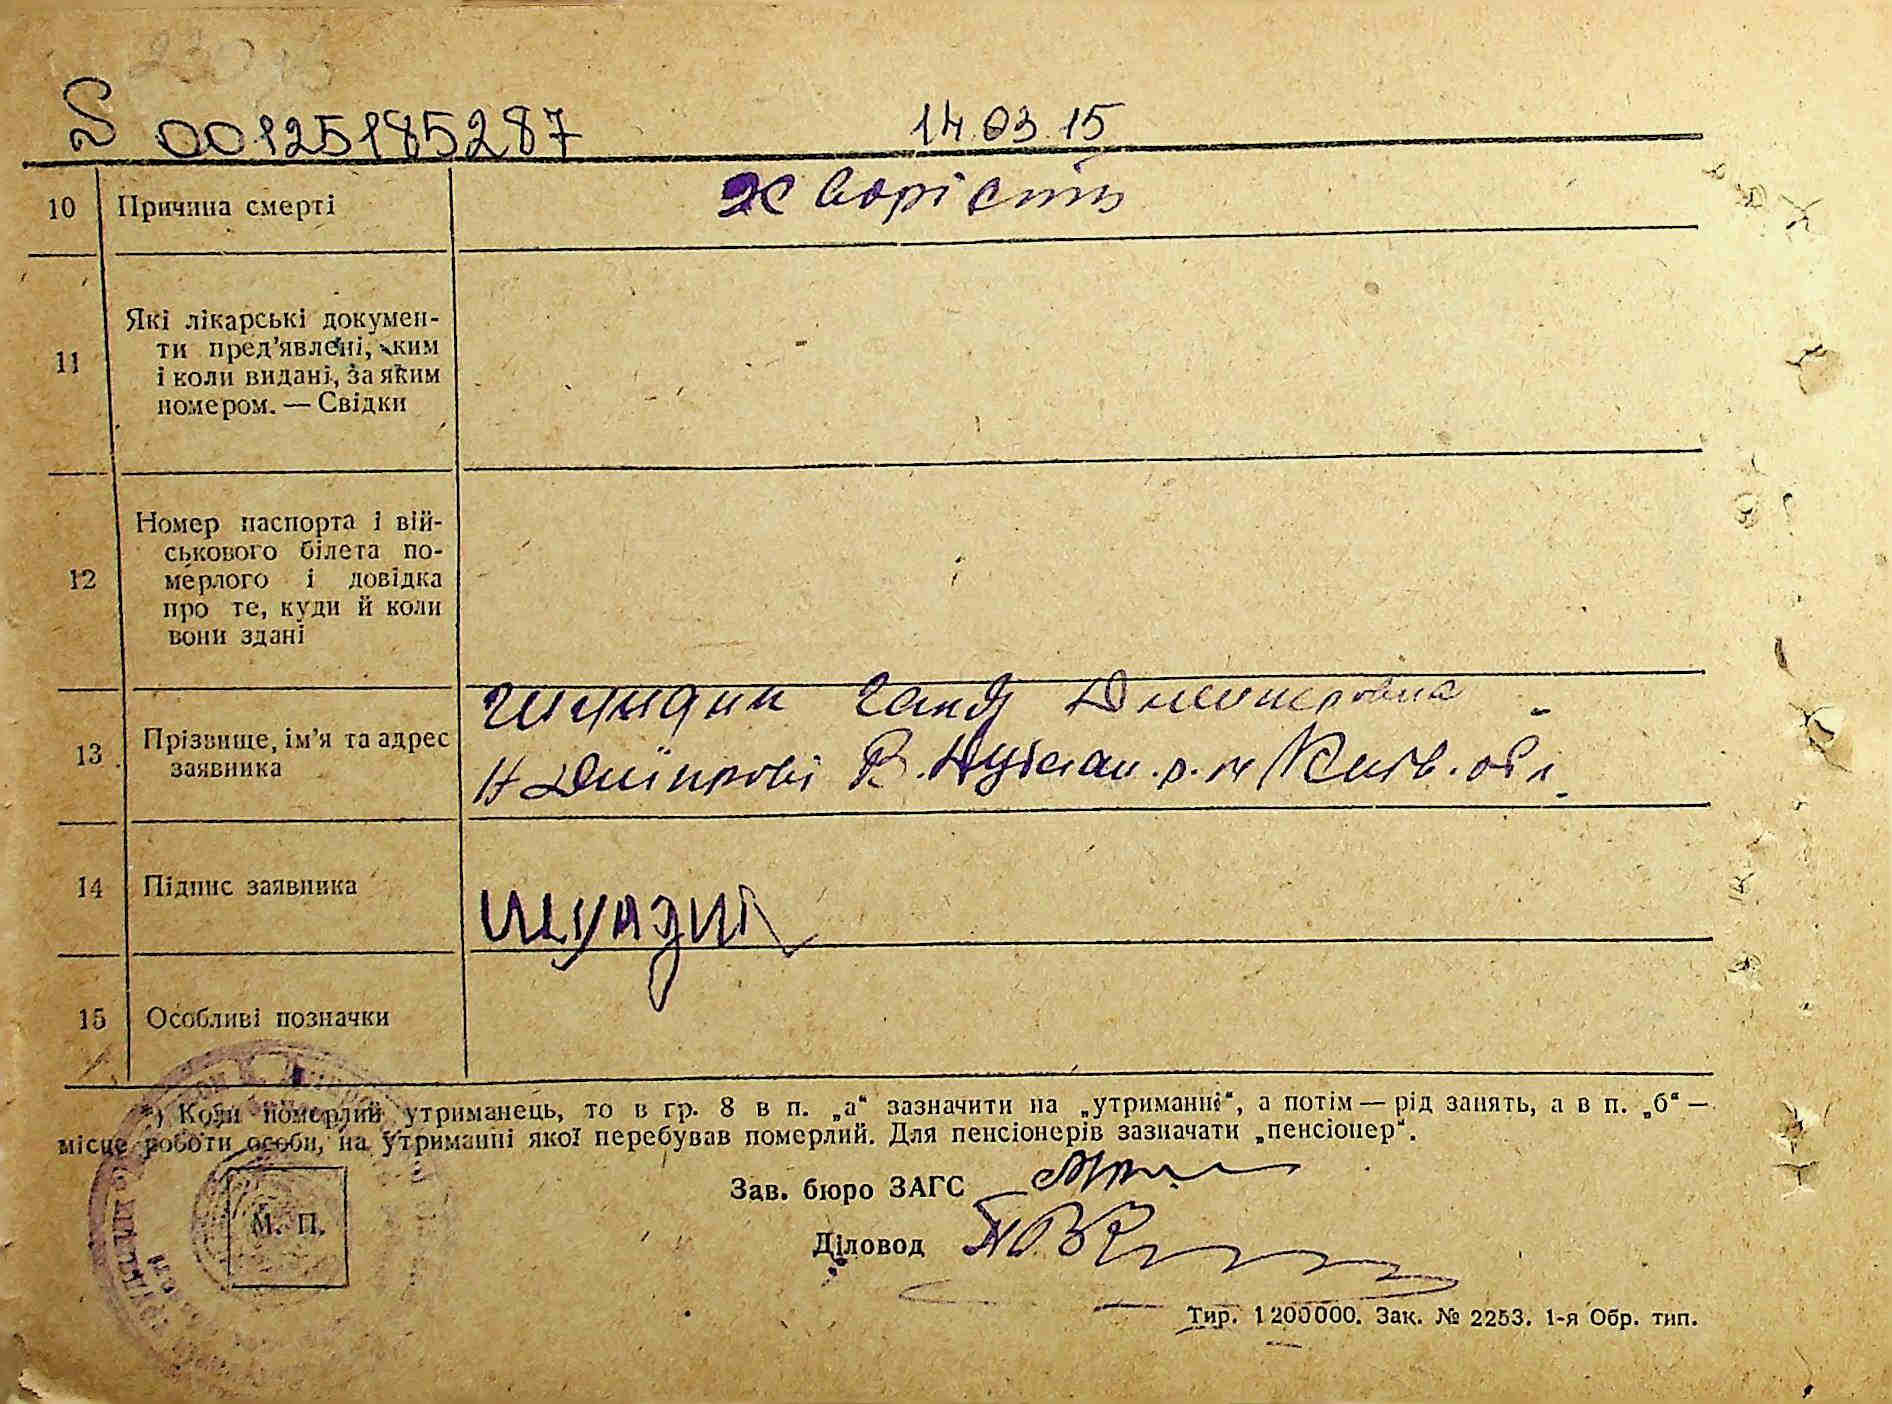 S 001251185287 14.03.15
10 Причина смерті хворість
11 Які лікарські докумен-
ти пред’явлені, ким
і коли видані, за яким
номером. — Свідки
12 Номер паспорта і вій-
ськового білета по-
мерлого і довідка
про те, куди й коли
вони здані
13 Прізвище, ім’я та адрес
заявника
Н Дніпрові В. р. н Київ. обл.
14 Підпис заявника
15 Особливі позначки
*) Коли померлий утриманець, то в гр. 8 в п. „а“ зазначити на „утриманні“, а потім — рід занять, а в п. „б“ —
місце роботи особи, на утриманні якої перебував померлий. Для пенсіонерів зазначати „пенсіонер“.
Зав. бюро ЗАГС
М. П.
Діловод
Тир. 1200000. Зак. № 2253. 1-я Обр. тип.